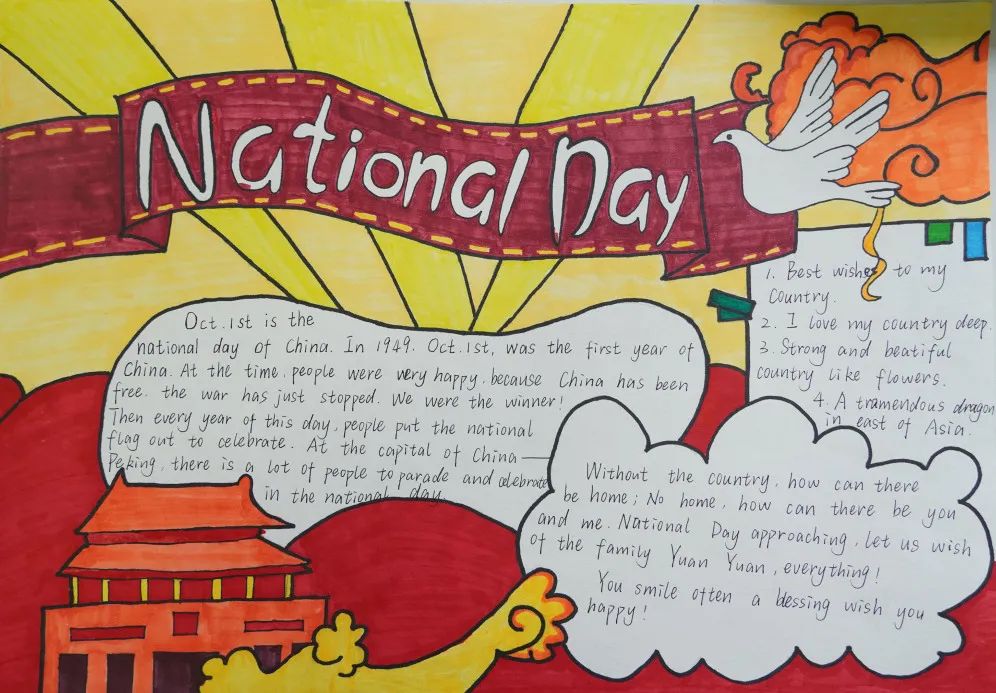 National Day
Oct.1st is the
national day of China. In 1949. Oct.1st, was the first year of
China. At the time, people were very happy, because China has been
free. the war has just stopped. We were the winner!
Then every year of this day, people put the national
flag out to celebrate. At the capital of China —
Peking, there is a lot of people to parade and celebrate
in the national day
1. Best wishes to my
Country.
2. I love my country deep.
3. Strong and beatiful
country like flowers.
4. A tramendous dragon
in east of Asia.
Without the country, how can there
be home; No home, how can there be you
and me. National Day approaching, let us wish
of the family Yuan Yuan, everything!
You smile often a blessing wish you
happy!